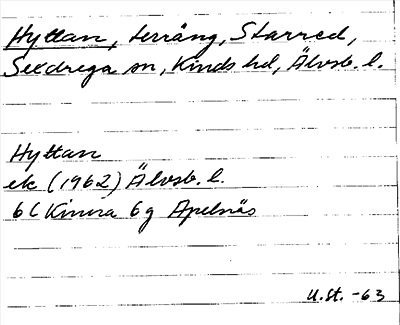 Hyttan, terräng, Starred,
Sexdrega sn, Kinds hd, Älvsb. l.
Hyttan
ek (1962) Älvsb. l.
6C Kinna 6g Apelnäs
U.St. -63